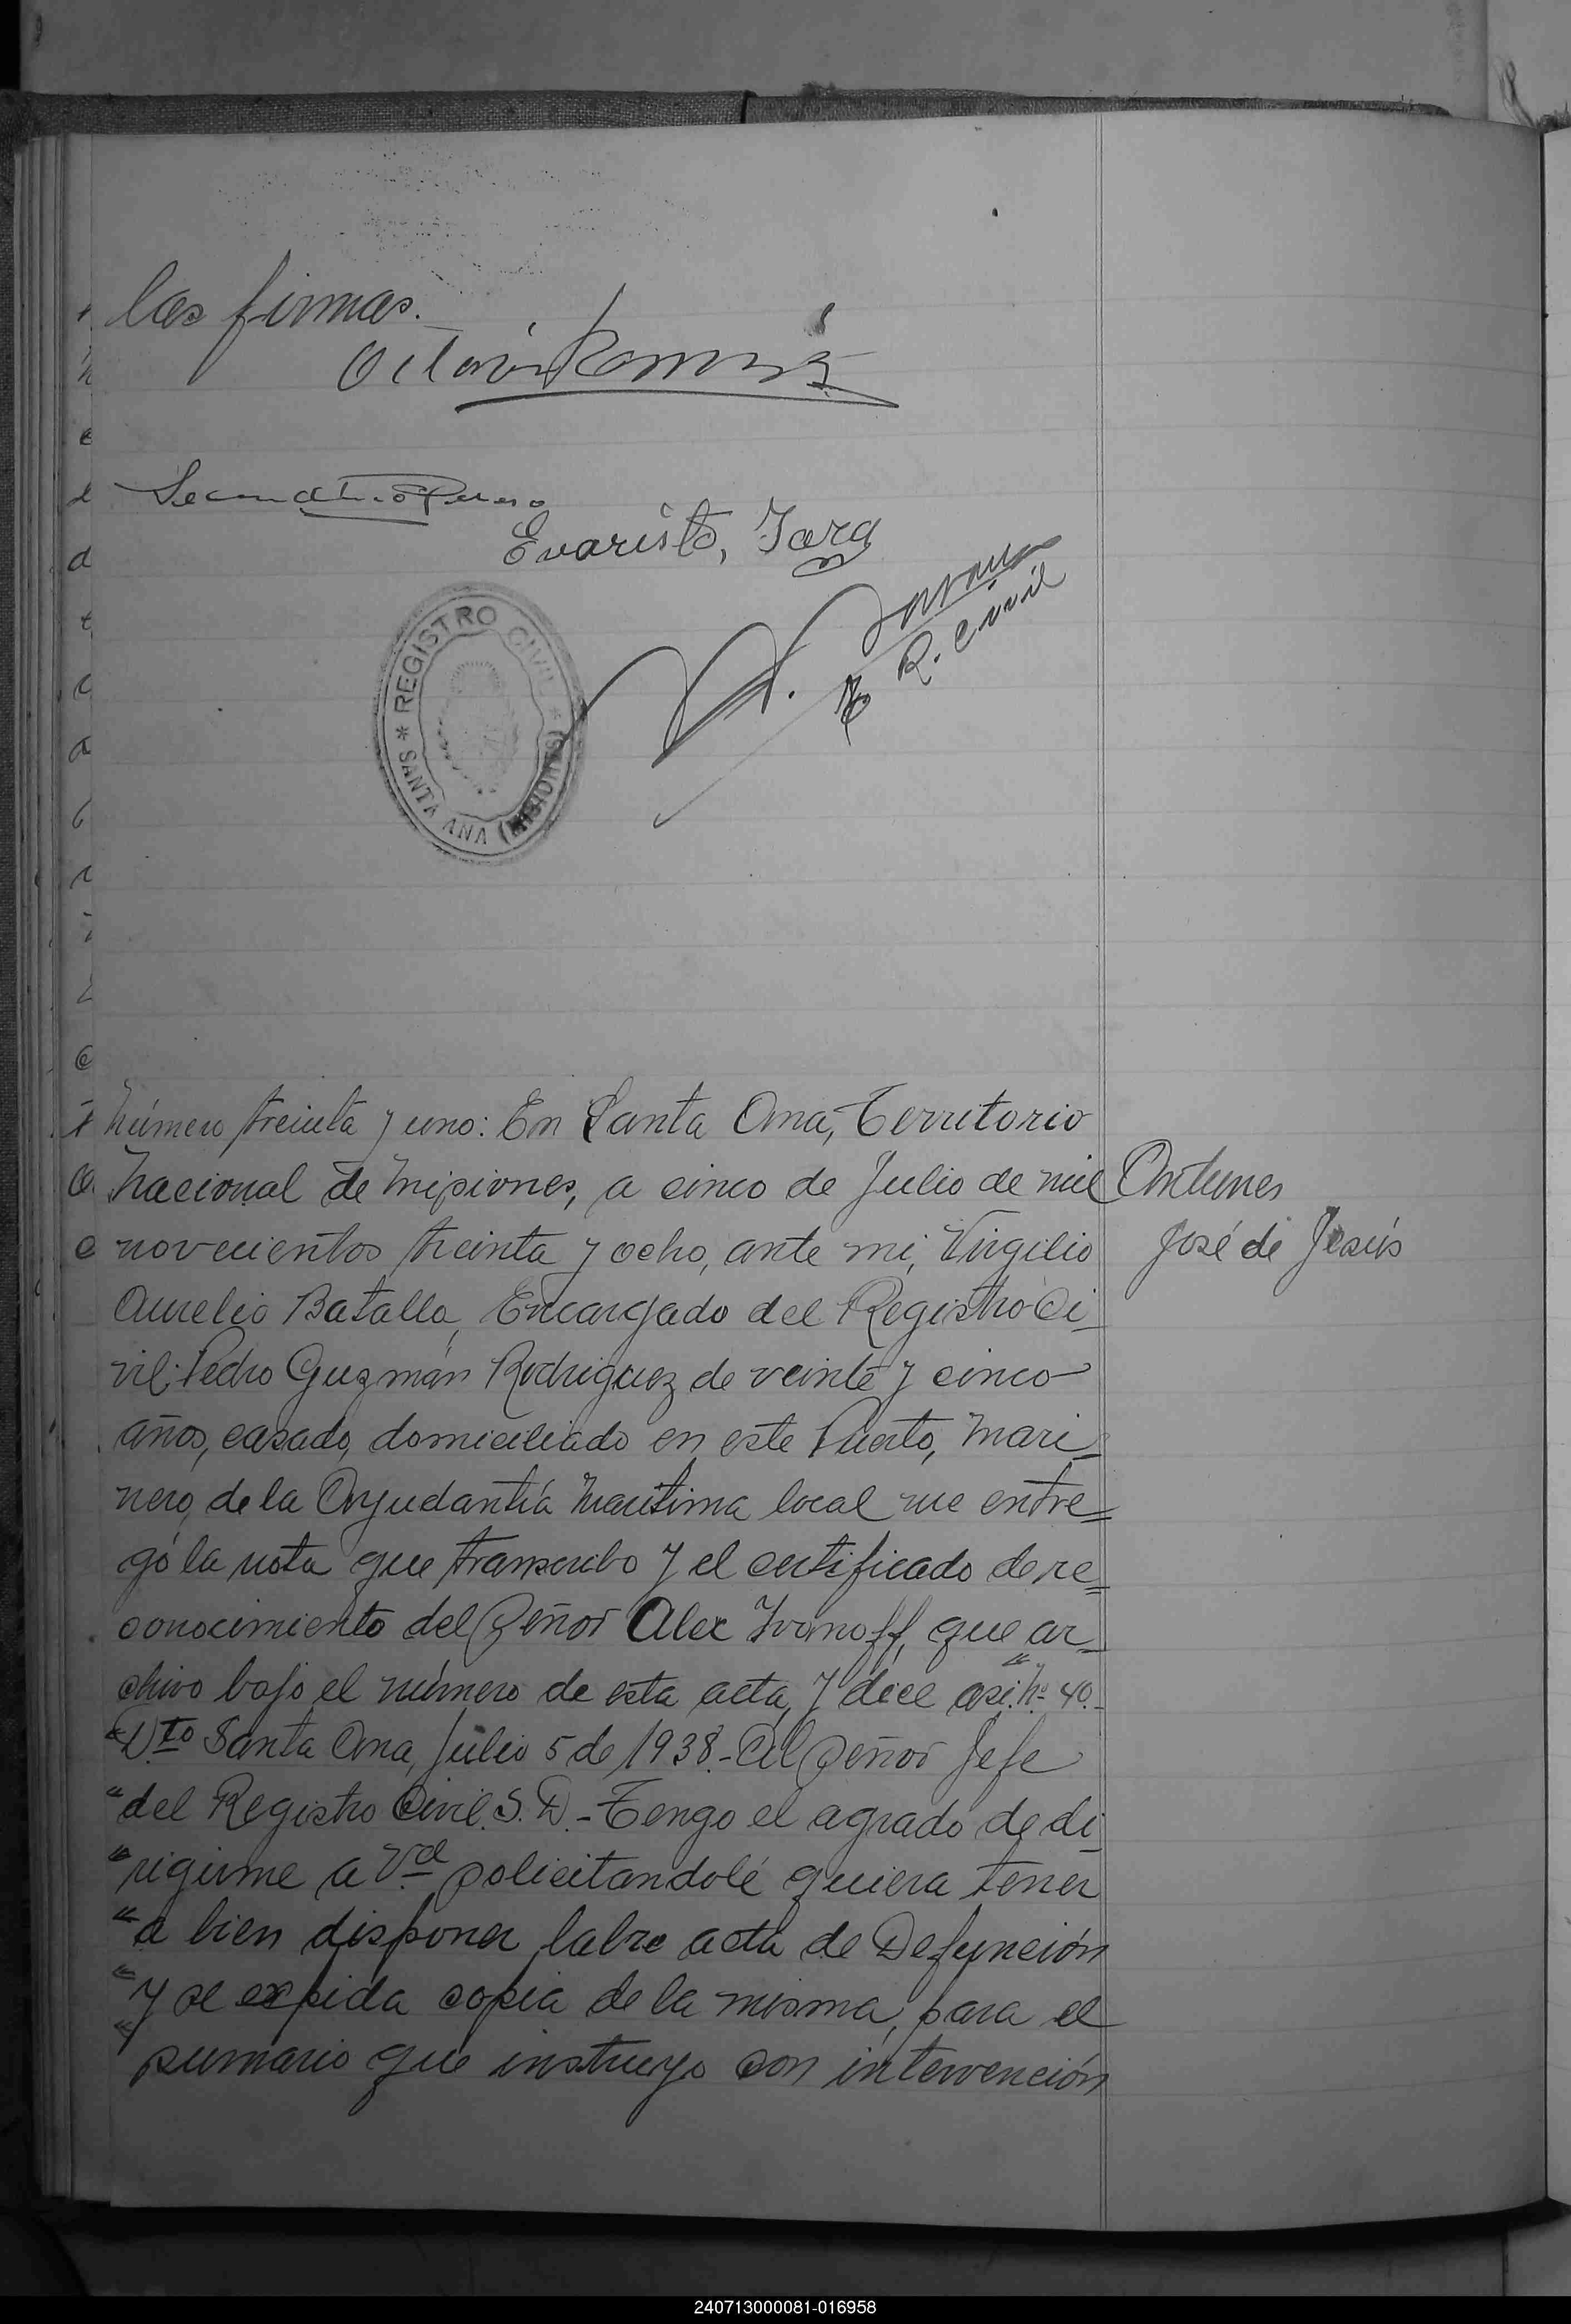 las firmas.
Evaristo, Jara
R. Civil
* REGISTRO CIVIL * SANTA ANA (MISIONES)
Número treinta y uno: En Santa Ana, Territorio
Nacional de Misiones, a cinco de Julio de mil
novecientos treinta y ocho, ante mi, Virgilio
Aurelio Batalla, Encargado del Registro Ci-
vil: Pedro Guzmán Rodriguez de veinte y cinco
años, casado, domiciliado en este Puerto, Mari-
nero, de la Ayudantía Marítima local me entre=
gó la nota que transcribo y el certificado de re=
conocimiento del Señor Alex Ivanoff, que ar-
chivo bajo el número de esta acta, y dice asi: "Nº 40.-
"Pto Santa Ana, Julio 5 de 1938.- Al Señor Jefe
"del Registro Civil. S. D.- Tengo el agrado de di-
"rigirme a Vd. solicitandolé quiera tener
"a bien disponer labre acta de Defunción
"y se expida copia de la misma, para el
"sumario que instruyo con intervención
Antunes
José de Jesús
240713000081-016958